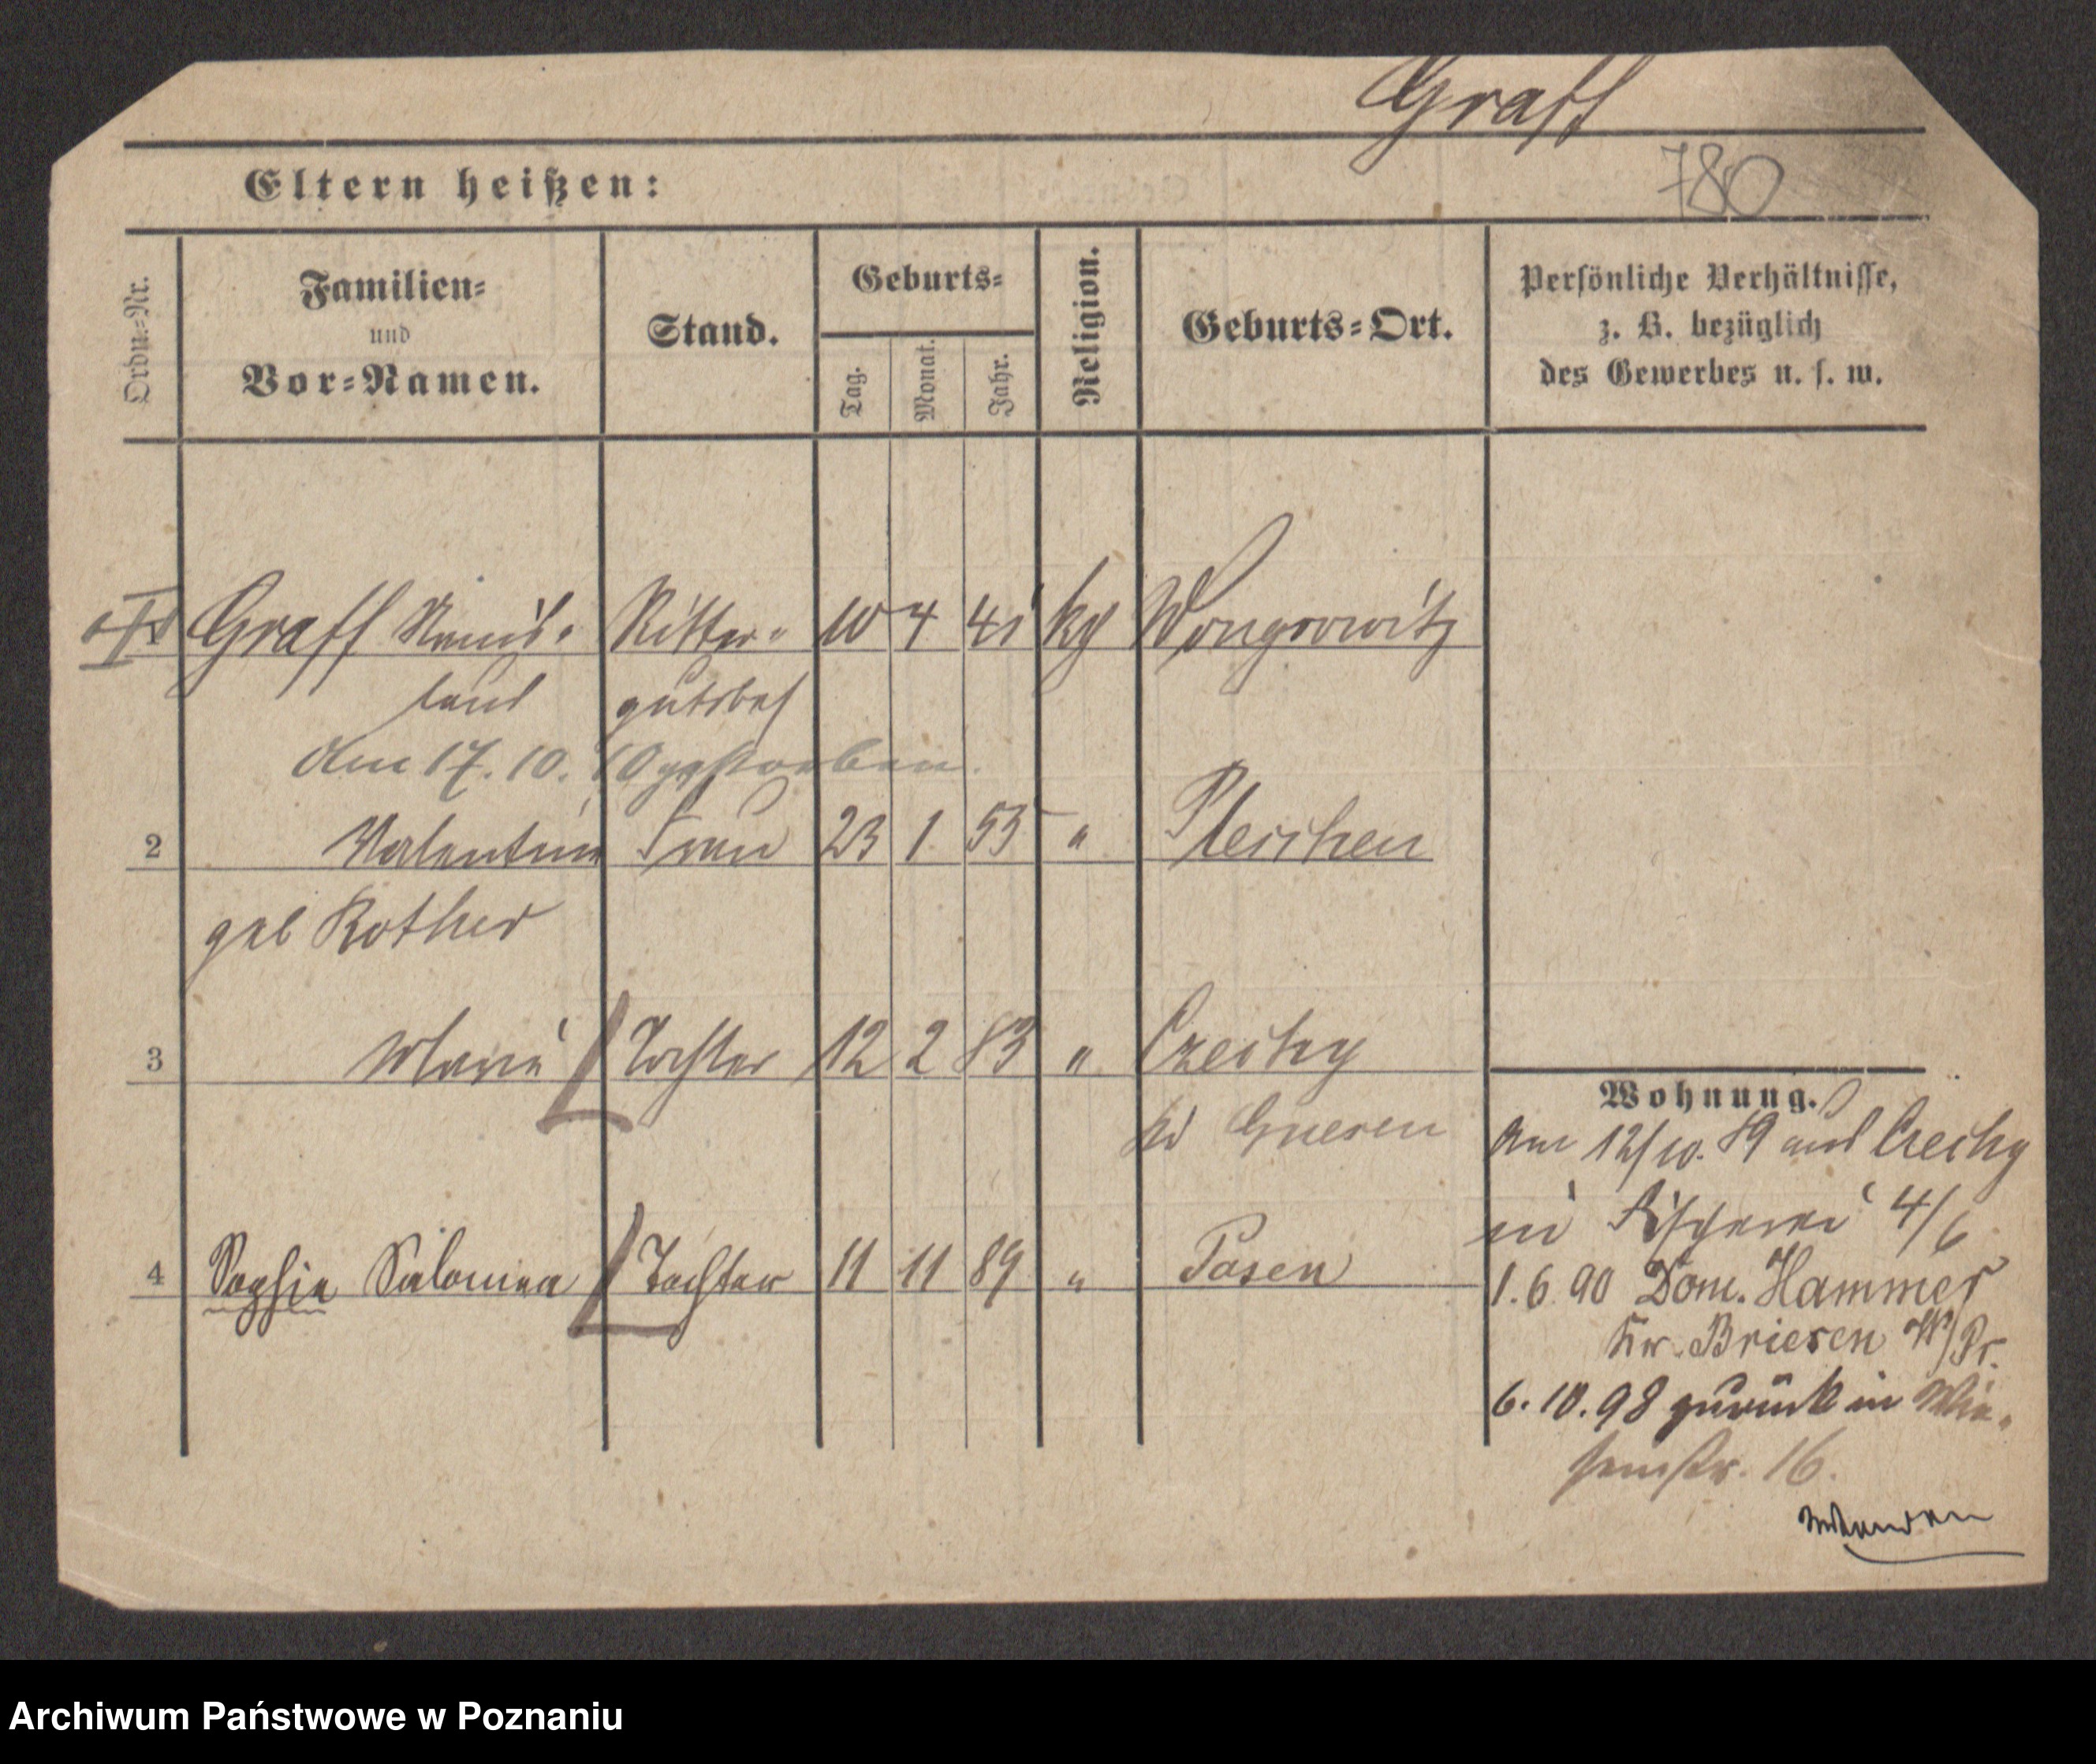 Graff
780
Eltern heißen:
Ordn.-Nr.
Familien-
und
Vor-Namen.
Stand.
Geburts-
Tag.
Monat.
Jahr.
Religion.
Geburts-Ort.
Persönliche Verhältnisse,
z. B. bezüglich
des Gewerbes u. s. w.
Graff Stanis- Ritter- 10 4 41 kg Wongrowitz
laus gutsbes
Am 17. 10. gestorben.
2 Valentine Frau 23 1 55 " Pleschen
geb Rother
3 Marie Tochter 12 2 83 " Czechy
Gnesen
4 Sophie Salomea Tochter 11 11 89 " Posen
Wohnung.
Am 12/10. 89 aus Czechy
in Fischerei 4/6
1. 6 90 Dom. Hammer
Kr. Briesen W/Pr.
6. 10. 98 zurück in Wie-
senstr. 16.
Archiwum Państwowe w Poznaniu